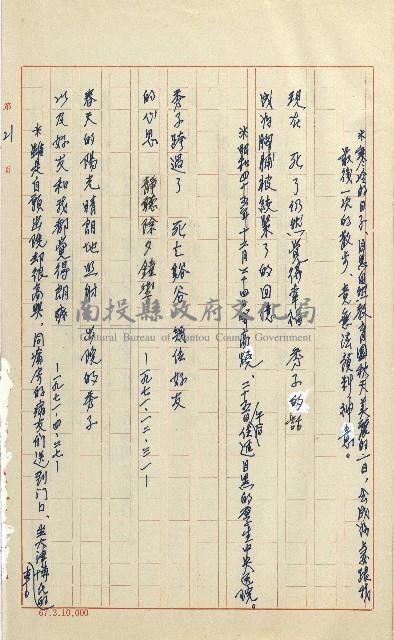 ※寒冷的日子,目黑自然教育園秋天美麗的一日,
最後一次的散步,竟無法預料神意。
現在 死了仍然覺得幸福 秀子的話
成為胸脯被絞緊了的回憶
※昭和四十五年十二月二十四日 高燒、二十五日午前住進目黑的厚生中央医院。
秀子跨過了 死亡谿谷 諸位好友
的心思 靜聽除夕鐘聲
—一九七一.一二.三一—
春天的陽光晴朗地照射 出院的秀子
以及好友和我都覺得朗爽
—一九七一.四.二七—
※雖是自願出院却很高興,同病房的病友們送到門口,坐大津博氏的
車子
第 21 頁
南投縣政府文化局
Cultural Bureau of Nantou County Government
67.3.10,000